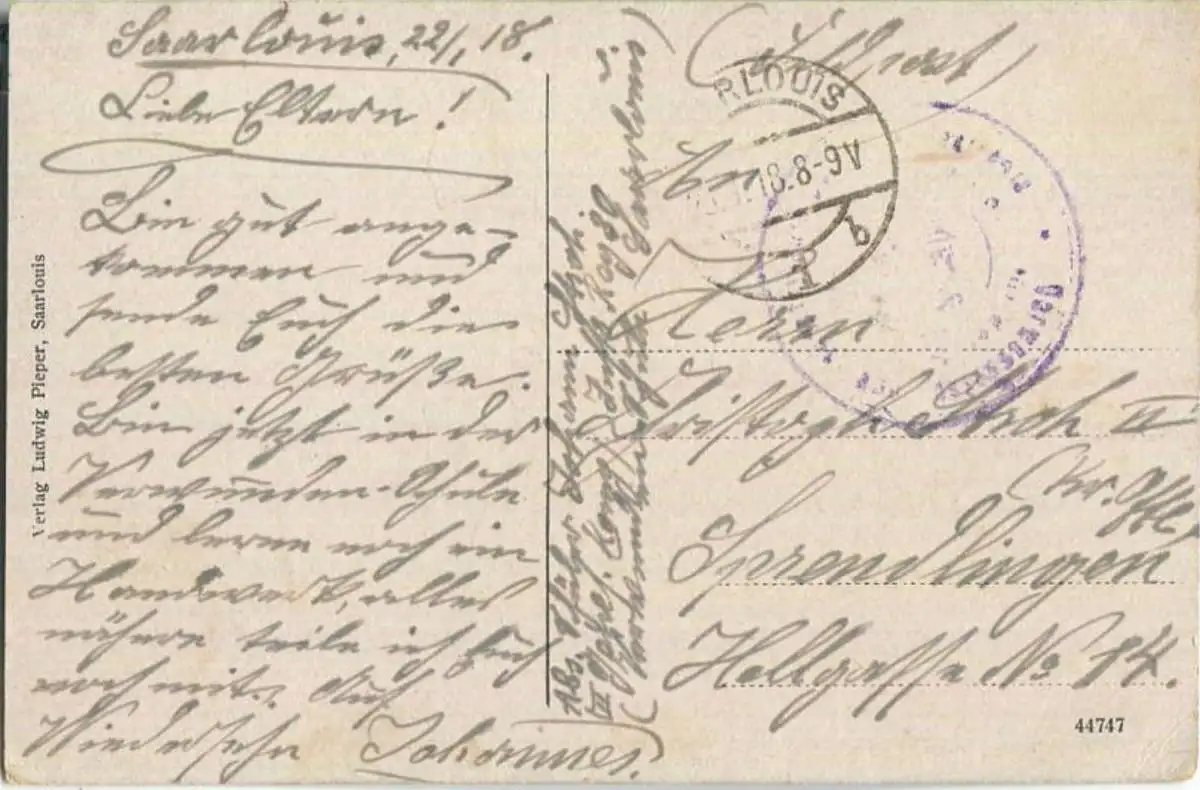 Saarlouis, 22/1. 18.
Liebe Eltern!
Bin gut ange-
kommen und
sende Euch die
besten Grüße.
Bin jetzt in der
Verwunden-Schule
und lerne noch ein
Handwerk, alles
nähere teile ich Euch
noch mit. Auf
Wiedersehn Johannes.
Verlag Ludwig Pieper, Saarlouis
Abs. Johann
III Komp. Inf. Reg
Saarlouis
(Feldpost)
RLOUIS
18.8-9V
An
Herrn
II
Sprendlingen
Hellgasse No 14.
44747